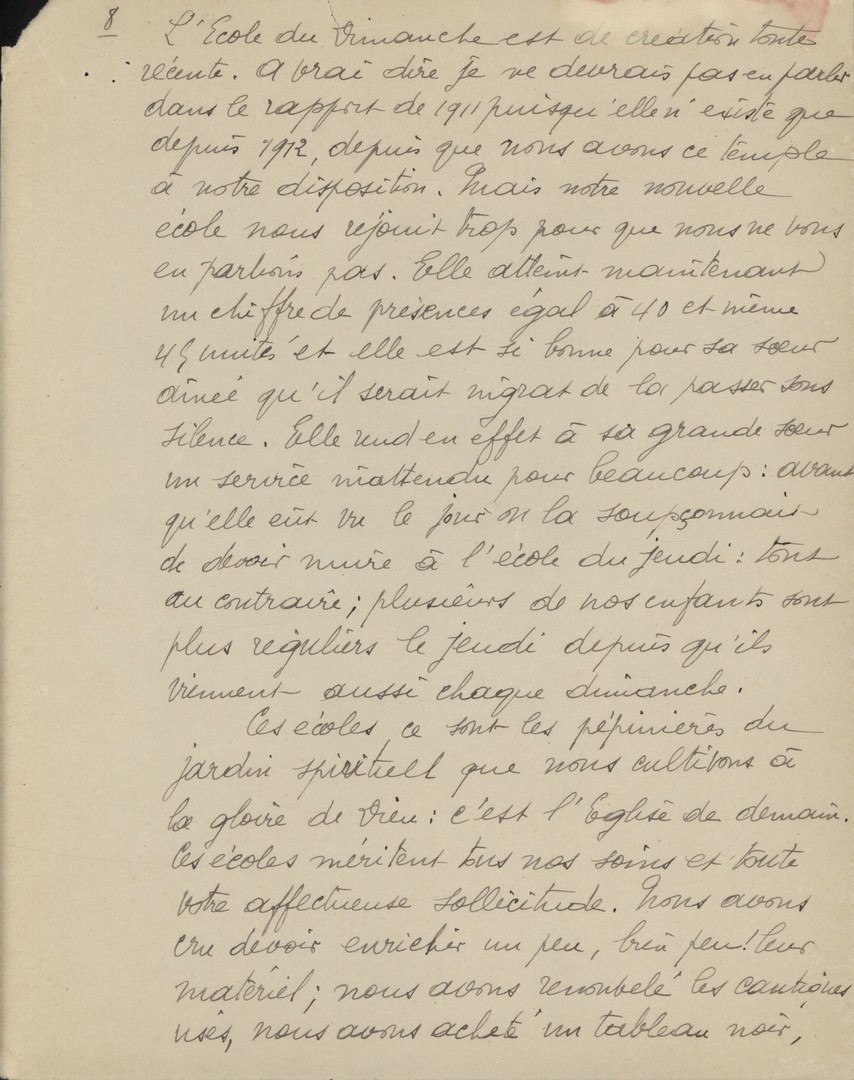 8
L'Ecole du Dimanche est de création toute
récente. A vrai dire je ne devrais pas en parler
dans le rapport de 1911 puisqu'elle n'existe que
depuis 1912, depuis que nous avons ce temple
à notre disposition. Mais notre nouvelle
école nous réjouit trop pour que nous ne vous
en parlions pas. Elle atteint maintenant
un chiffre de présences égal à 40 et même
45 unités et elle est si bonne pour sa sœur
aînée qu'il serait ingrat de la passer sous
silence. Elle rend en effet à sa grande sœur
un service inattendu pour beaucoup : avant
qu'elle eût vu le jour on la soupçonnait
de devoir nuire à l'école du jeudi : tout
au contraire ; plusieurs de nos enfants sont
plus réguliers le jeudi depuis qu'ils
viennent aussi chaque dimanche.
Ces écoles, ce sont les pépinières du
jardin spirituel que nous cultivons à
la gloire de Dieu : c'est l'Eglise de demain.
Ces écoles méritent tous nos soins et toute
votre affectueuse sollicitude. Nous avons
cru devoir enrichir un peu, bien peu ! leur
matériel ; nous avons renouvelé les cantiques
usés, nous avons acheté un tableau noir,